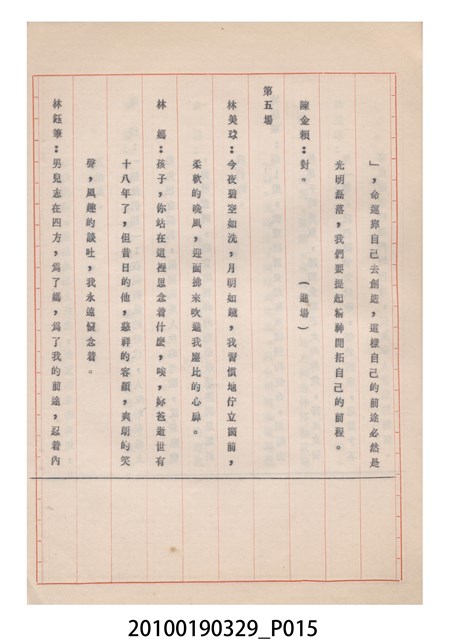 」，命運靠自己去創造，這樣自己的前途必然是
光明磊落，我們要提起精神開拓自己的前程。
陳金賴：對。　（退場）
第五場
林美球：今夜碧空如洗，月明如鏡，我習慣地佇立窗前，
柔軟的晚風，迎面拂來吹過我塵比的心扉。
林　媽：孩子，你站在這裡思念着什麼，唉，妳爸逝世有
十八年了，但昔日的他，慈祥的容顏，爽朗的笑
聲，風趣的談吐，我永遠懷念着。
林鈺華：男兒志在四方，爲了媽，爲了我的前途，忍着內
20100190329_P015